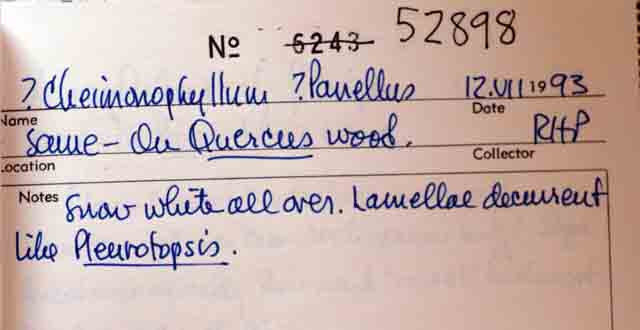 Nº 6243 52898
? Cheimonophyllum ? Panellus 12.VII 1993
Name Date
Same - On Quercus wood. RHP
Location Collector
Notes Snow white all over. Lamellae decurrent
like Pleurotopsis.